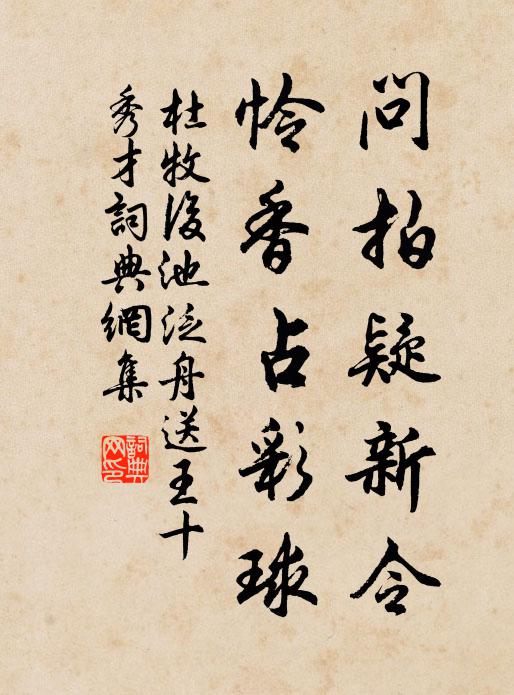 問拍疑新令
怜香占彩球
杜牧後池泛舟送王十
秀才詞典網集
詞典网印